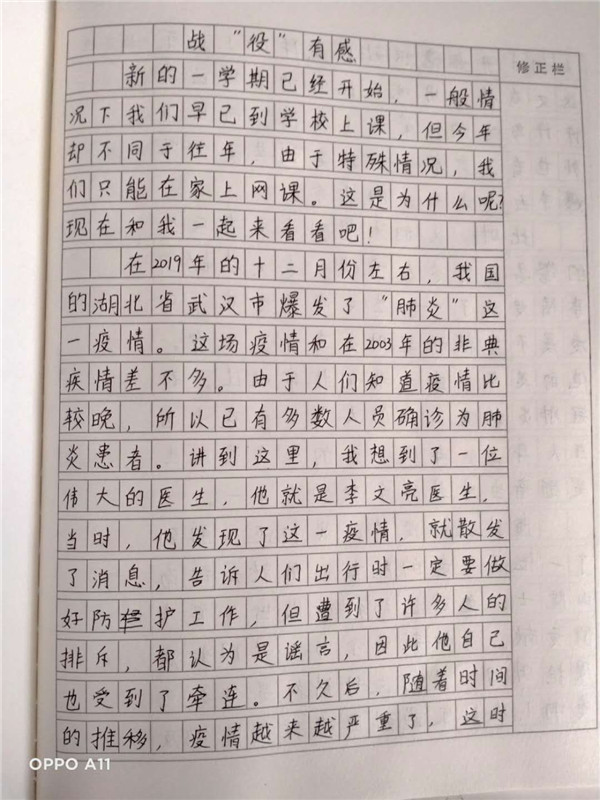 战“役”有感
修正栏
新的一学期已经开始，一般情
况下我们早已到学校上课，但今年
却不同于往年，由于特殊情况，我
们只能在家上网课。这是为什么呢？
现在和我一起来看看吧！
在2019年的十二月份左右，我国
的湖北省武汉市爆发了“肺炎”这
一疫情。这场疫情和在2003年的非典
疾情差不多。由于人们知道疫情比
较晚，所以已有多数人员确诊为肺
炎患者。讲到这里，我想到了一位
伟大的医生，他就是李文亮医生，
当时，他发现了这一疫情，就散发
了消息，告诉人们出行时一定要做
好防护工作，但遭到了许多人的
排斥，都认为是谣言，因此他自己
也受到了牵连。不久后，随着时间
的推移，疫情越来越严重了，这时
OPPO A11